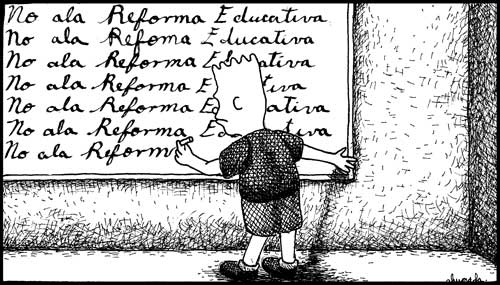 No ala Reforma Educativa
No ala Refoma Educativa
No ala Reforma Educativa
No ala Reforma E ativa
No ala Reforma Ed cativa
No ala Reforma Edu tiva
No ala Reform